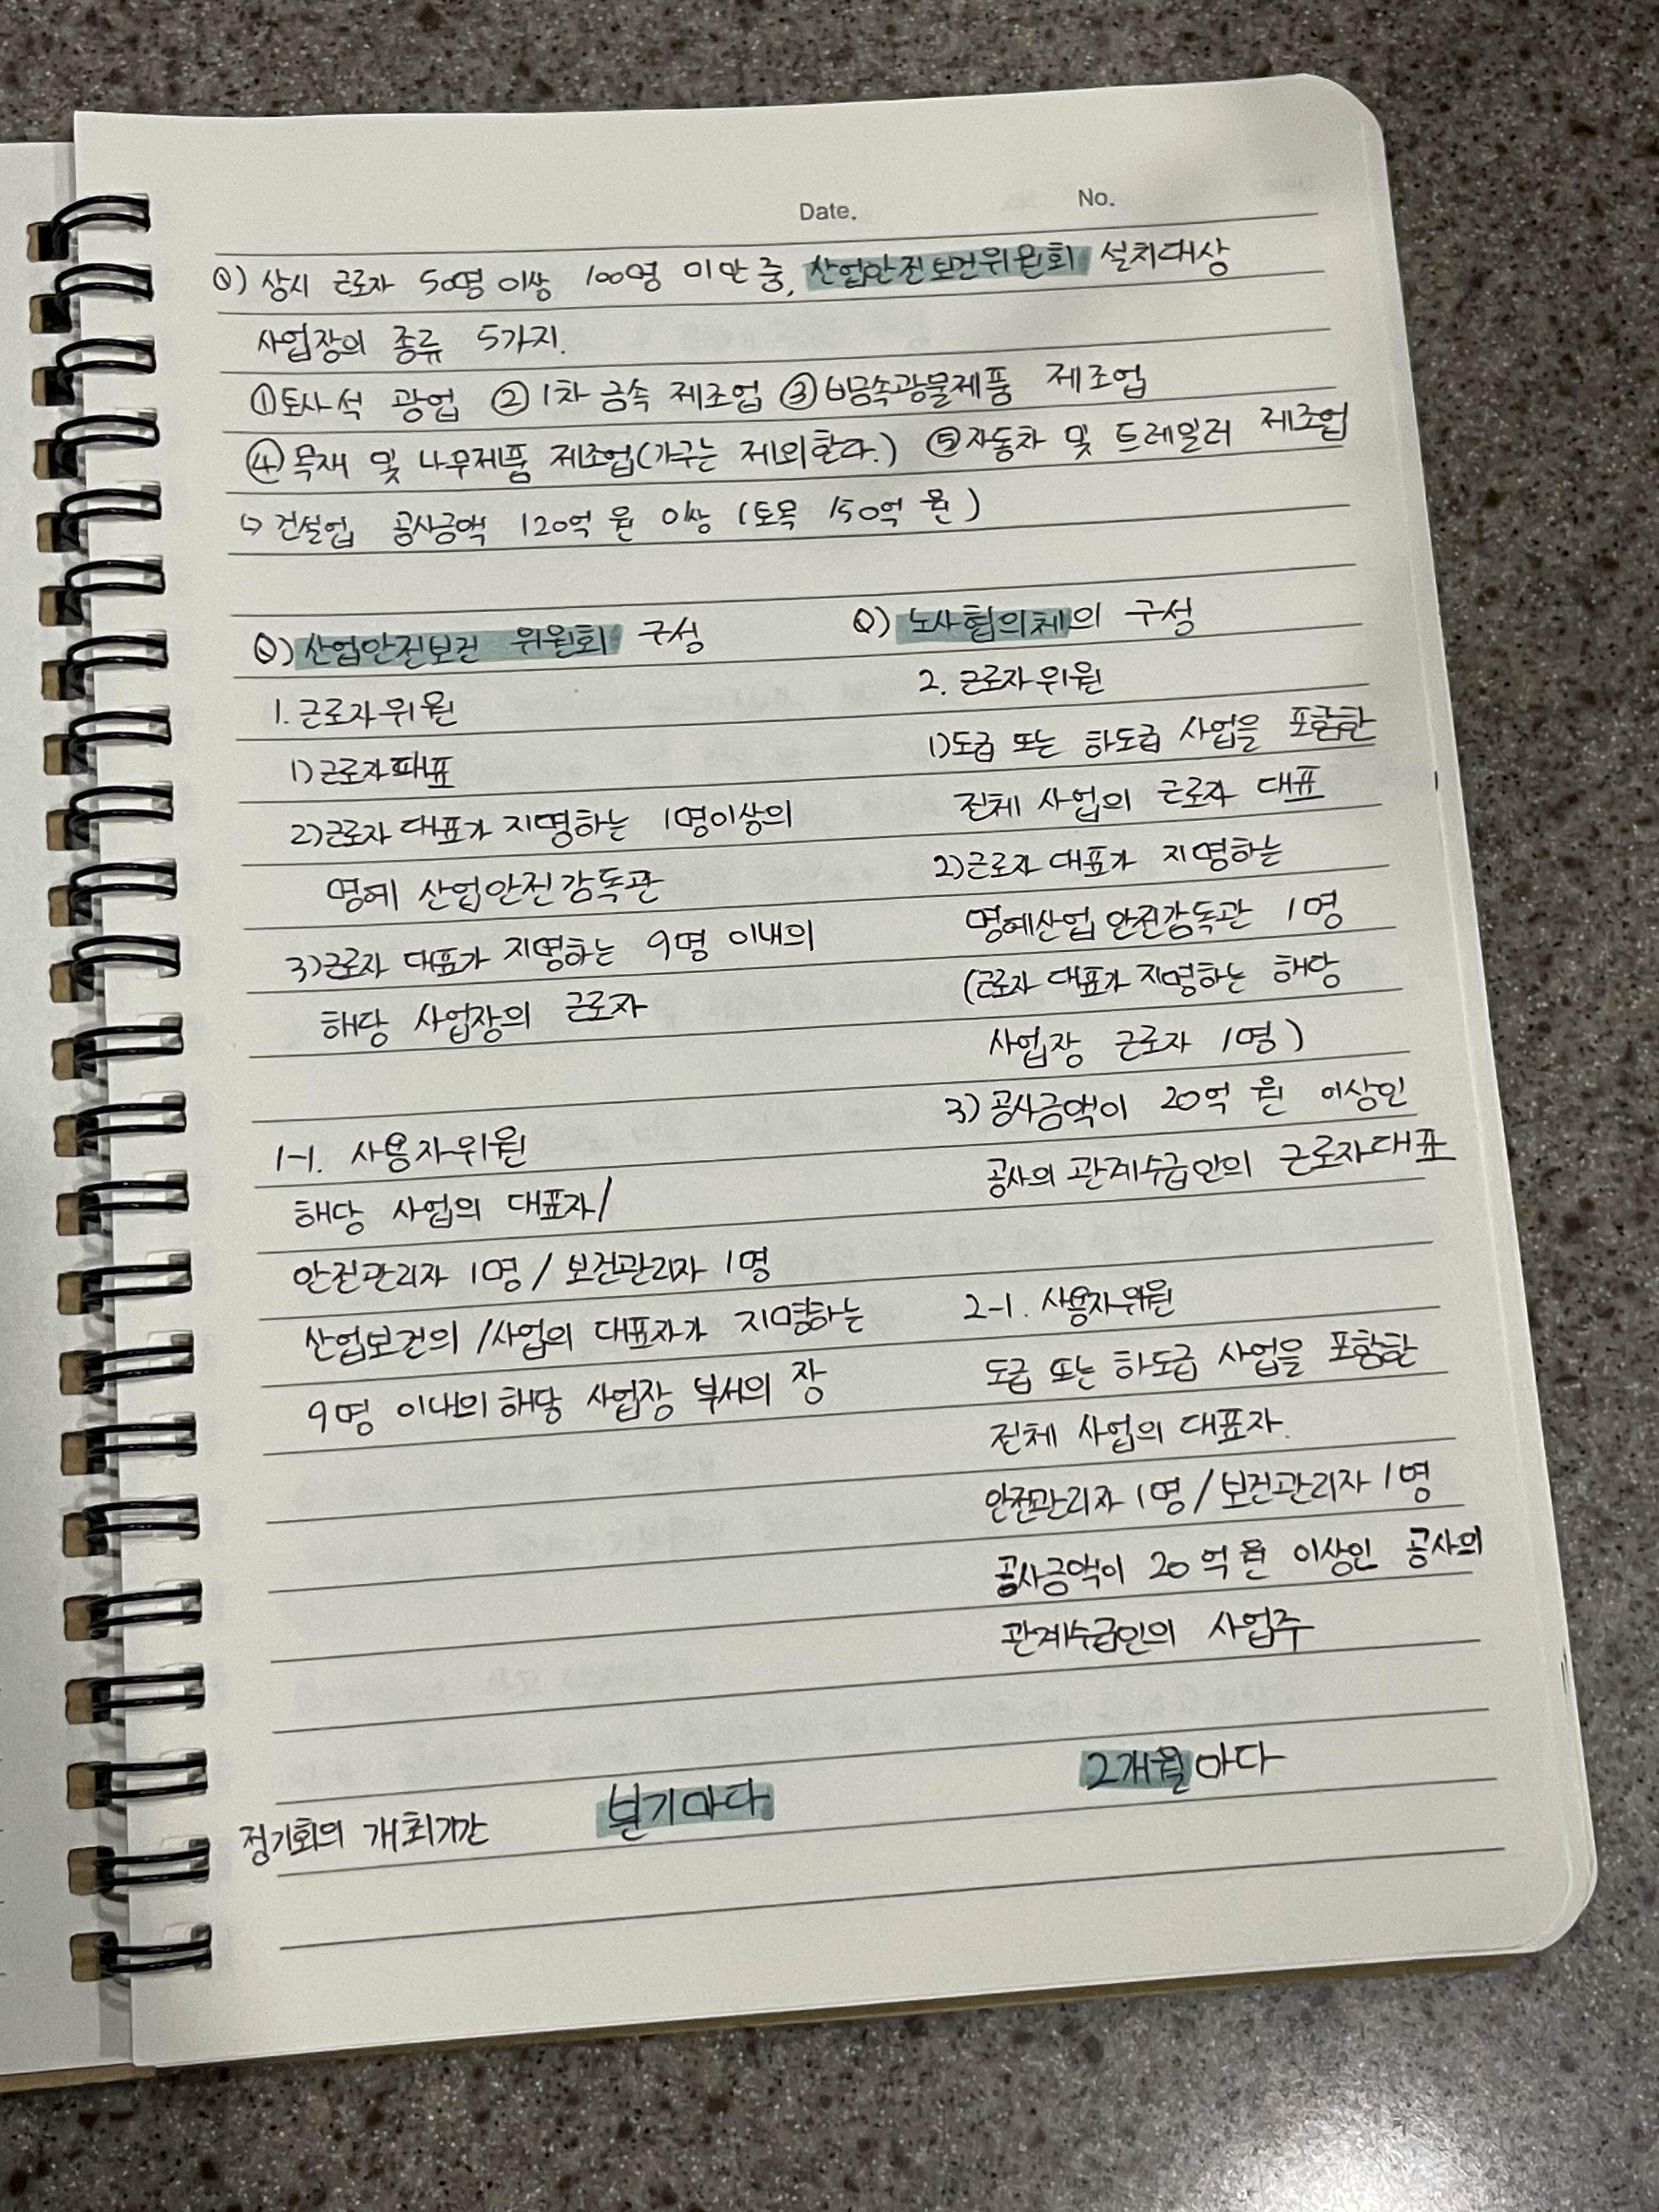 Date. No.
Q) 상시 근로자 50명 이상 100명 미만 중, 산업안전보건위원회 설치대상
사업장의 종류 5가지.
①토사석 광업 ②1차 금속 제조업 ③비금속광물제품 제조업
④목재 및 나무제품 제조업(가구는 제외한다.) ⑤자동차 및 트레일러 제조업
↳ 건설업 공사금액 120억 원 이상 (토목 150억 원)
Q) 산업안전보건 위원회 구성
1. 근로자위원
1)근로자대표
2)근로자 대표가 지명하는 1명이상의
명예 산업안전감독관
3)근로자 대표가 지명하는 9명 이내의
해당 사업장의 근로자
1-1. 사용자위원
해당 사업의 대표자/
안전관리자 1명 / 보건관리자 1명
산업보건의 /사업의 대표자가 지명하는
9명 이내의 해당 사업장 부서의 장
Q) 노사협의체의 구성
2. 근로자위원
1)도급 또는 하도급 사업을 포함한
전체 사업의 근로자 대표
2)근로자 대표가 지명하는
명예산업안전감독관 1명
(근로자 대표가 지명하는 해당
사업장 근로자 1명)
3) 공사금액이 20억 원 이상인
공사의 관계수급인의 근로자대표
2-1. 사용자위원
도급 또는 하도급 사업을 포함한
전체 사업의 대표자.
안전관리자 1명 / 보건관리자 1명
공사금액이 20억 원 이상인 공사의
관계수급인의 사업주
정기회의 개최기간 분기마다 2개월마다